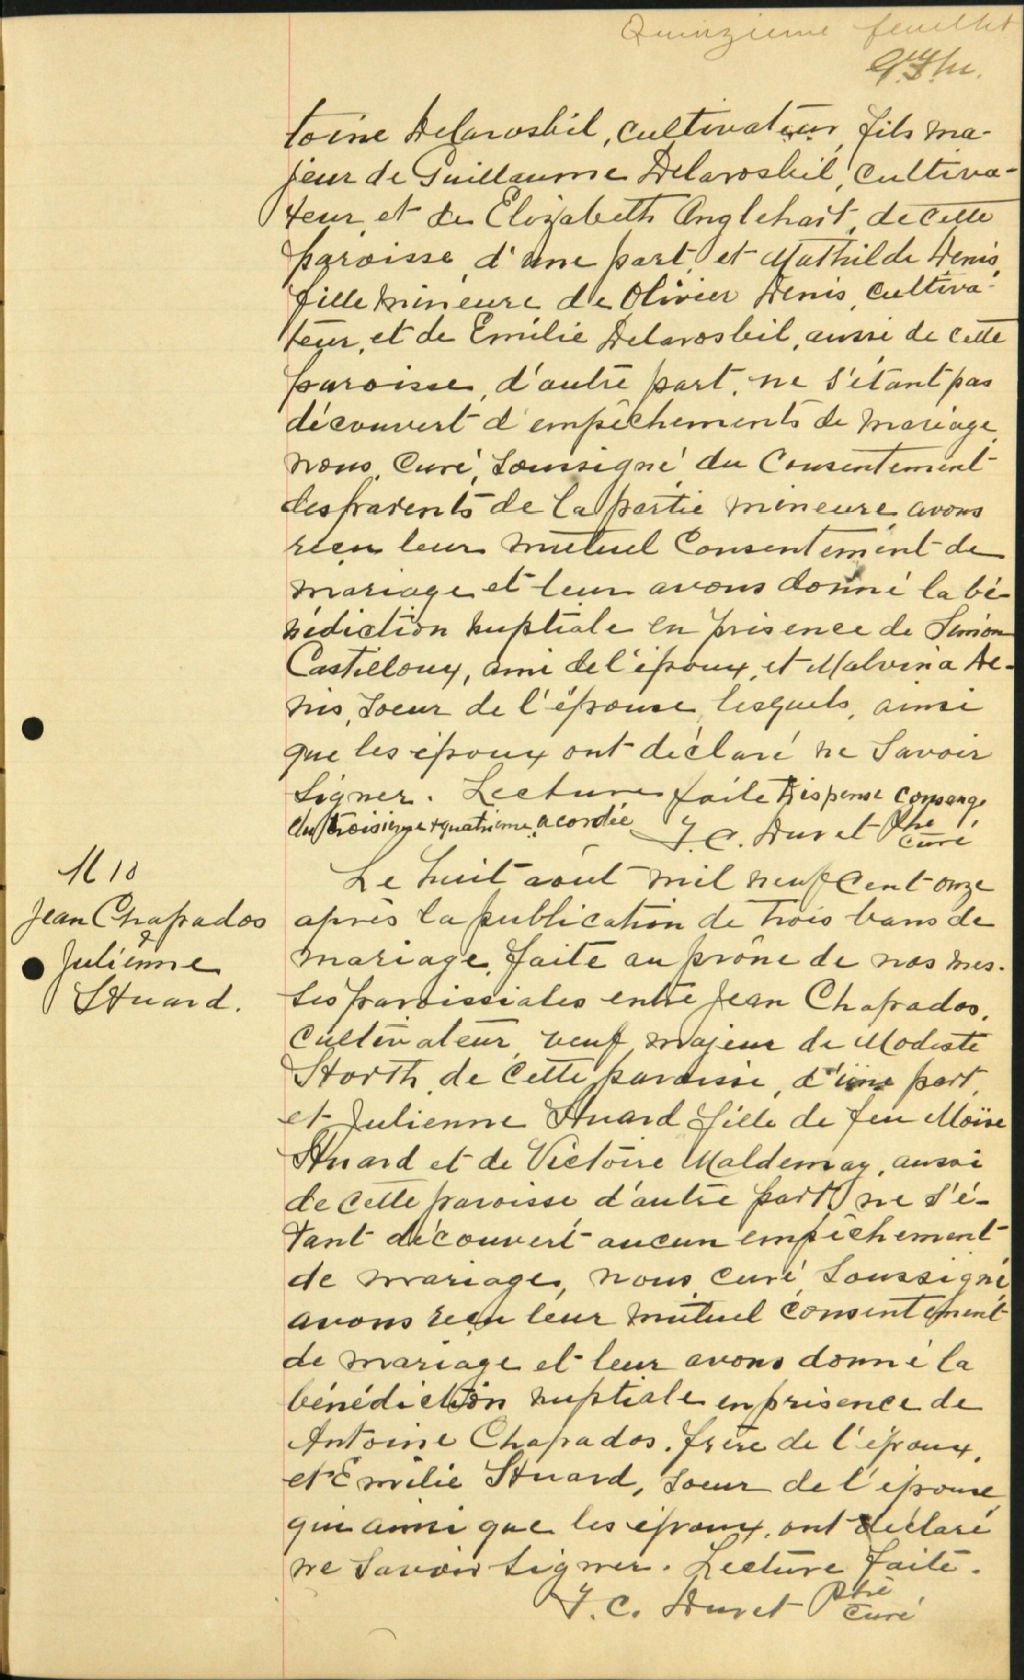 Quinzième feuillet
toine Delarosbil, cultivateur, fils ma-
jeur de Guillaume Delarosbil, cultiva-
teur et de Elizabeth Anglehart, de cette
paroisse, d'une part, et Mathilde Denis,
fille mineure de Olivier Denis, cultiva-
teur, et de Emilie Delarosbil, aussi de cette
paroisse, d'autre part, ne s'étant pas
découvert d'empêchements de mariage
nous, Curé, soussigné du Consentement
des parents de la partie mineure avons
reçu leur mutuel Consentement de
mariage et leur avons donné la bé-
nédiction nuptiale en présence de Simon
Castilloux, ami de l'époux, et Malvina De-
nis, soeur de l'épouse, lesquels, ainsi
que les époux ont déclaré ne savoir
signer. Lecture faite Dispense consang.
du troisième & quatrième acordée J. C. Duret Ptre
curé
M 10
Jean Chapados
&
Julienne
Huard.
Le huit août mil neuf cent onze
après la publication de trois bans de
mariage, faite au prône de nos mes-
ses paroissiales entre Jean Chapados,
cultivateur, veuf, majeur de Modeste
Horth, de cette paroisse, d'une part,
et Julienne Huard fille de feu Moïse
Huard et de Victoire Maldemay, aussi
de cette paroisse d'autre part, ne s'é-
tant découvert aucun empêchement
de mariage, nous, curé, soussigné
avons reçu leur mutuel consentement
de mariage et leur avons donné la
bénédiction nuptiale en présence de
Antoine Chapados, frère de l'époux,
et Emilie Huard, soeur de l'épouse,
qui ainsi que les époux, ont déclaré
ne savoir signer. Lecture faite.
J. C. Duret Ptre
curé